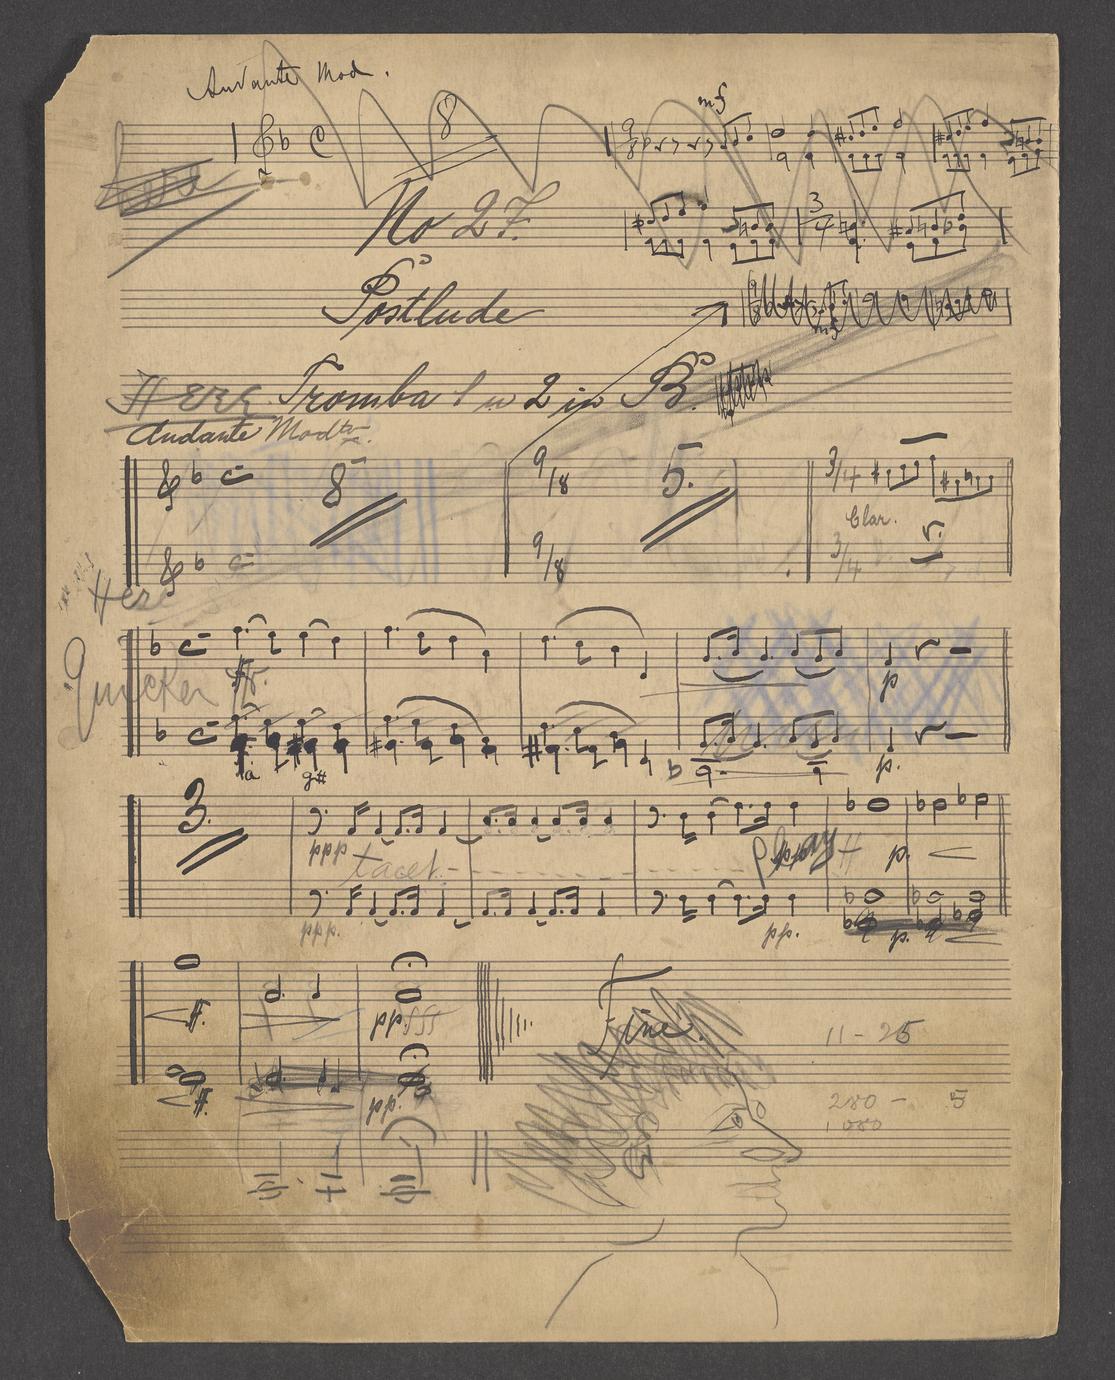 Andante Mod.
8
mf
9/8
No 27.
3/4
Postlude
mf
Here Tromba 1 2 in B.
Andante Modto.
8
9/8
5.
3/4
Clar.
9/8
3/4
Here
Quicker
p
a g#
p.
3.
ppp
tacet
p.
ppp.
pp.
p.
Fine.
pp. fff
11-25
pp.
280 - 5
1080